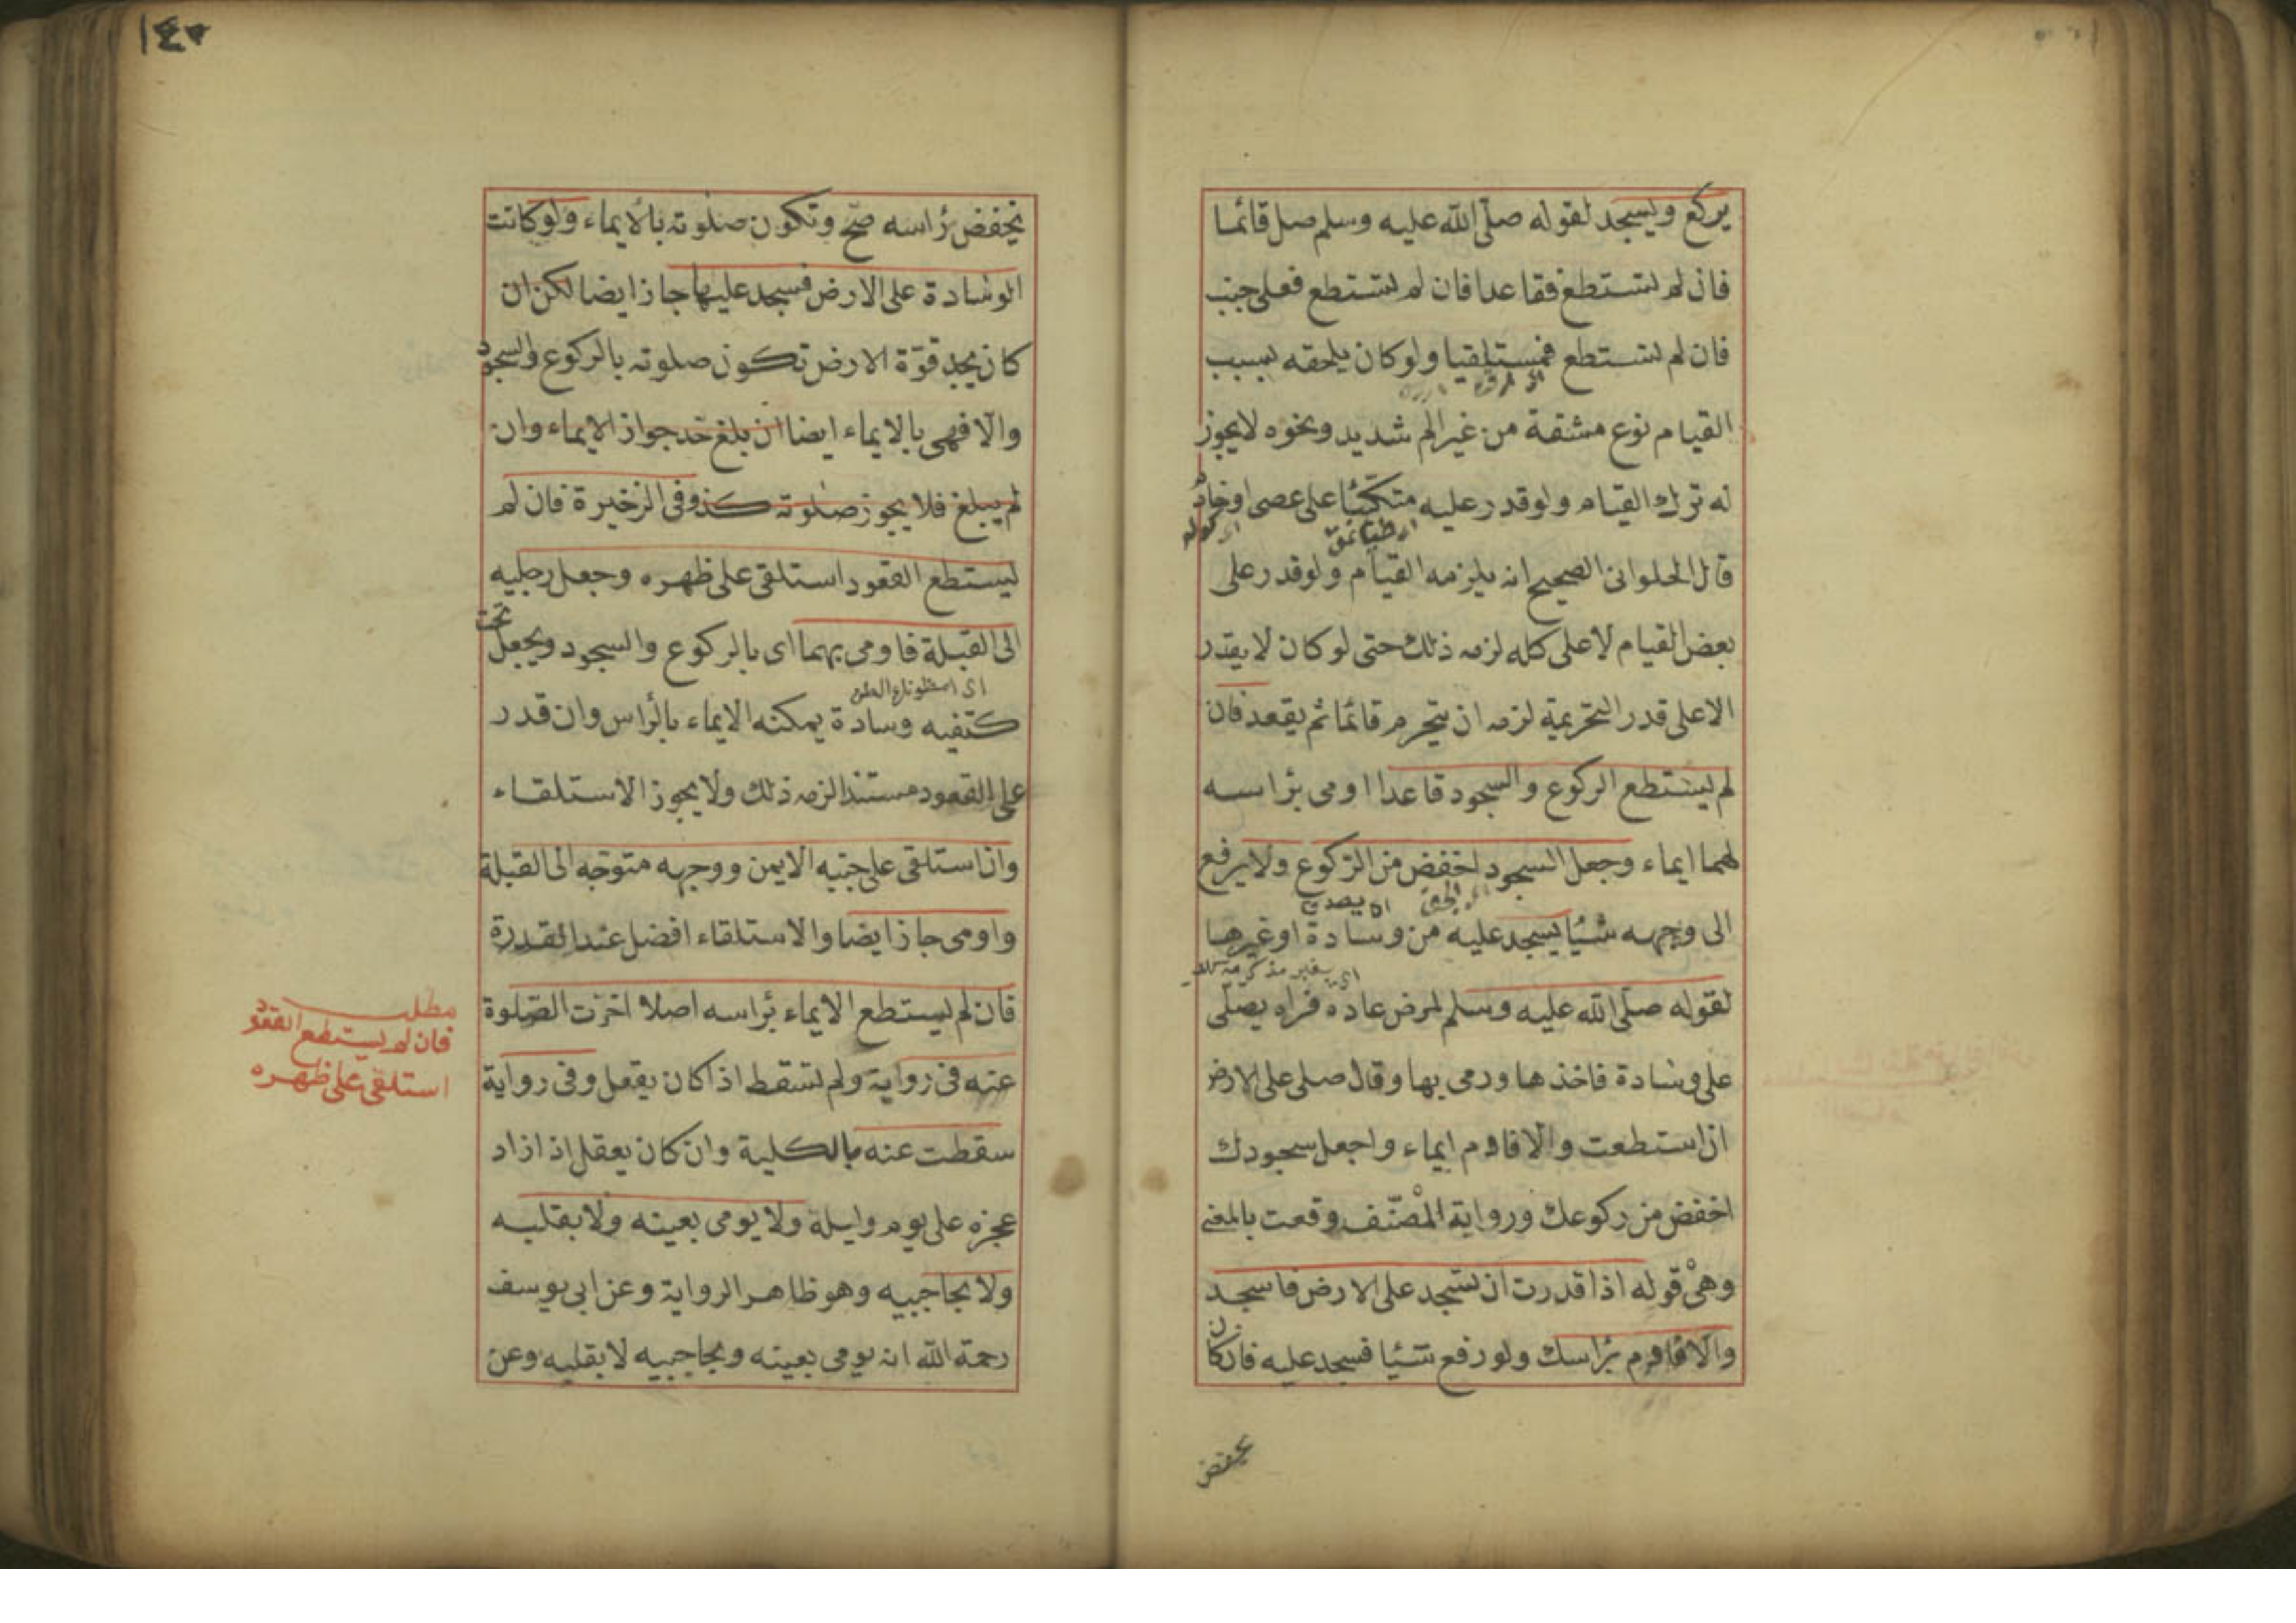 يركع ويسجد لقوله صلى الله عليه وسلم صل قائما
فان لم تستطع فقاعدا فان لم تستطع فعلى جنب
فان لم تستطع فمستلقيا ولو كان يلحقه بسبب
القيام نوع مشقة من غير الم شديد ونحوه لا يجوز
له ترك القيام ولو قدر عليه متكئا على عصى او خادم
قال الحلوانى الصحيح انه يلزمه القيام ولو قدر على
بعض القيام لا على كله لزمه ذلك حتى لو كان لا يقدر
الا على قدر التحريمة لزمه ان يتحرم قائما ثم يقعد فان
لم يستطع الركوع والسجود قاعدا اومى براسه
لهما ايماء وجعل السجود اخفض من الركوع ولا يرفع
الى وجهه شئا يسجد عليه من وسادة او غيرها
لقوله صلى الله عليه وسلم لمرض عاده فراه يصلى
على وسادة فاخذها ورمى بها وقال صلى على الارض
ان استطعت والا فاوم ايماء واجعل سجودك
اخفض من ركوعك ورواية المصنف وقعت بالمعنى
وهى قوله اذا قدرت ان تسجد على الارض فاسجد
والا فاوم براسك ولو رفع شئا فسجد عليه فان كان
يخفض
١٤٥
يخفض راسه صح وتكون صلوته بالايماء ولو كانت
الوسادة على الارض فسجد عليها جاز ايضا لكن ان
كان يجد قوة الارض تكون صلوته بالركوع والسجود
والا فهى بالايماء ايضا ان بلغ حد جواز الايماء وان
لم يبلغ فلا يجوز صلوته كذ وفى الزخيرة فان لم
يستطع القعود استلقى على ظهره وجعل رجليه
الى القبلة فاومى بهما اى بالركوع والسجود ويجعل تحت
كتفيه وسادة يمكنه الايماء بالراس وان قدر
على القعود مستندا لزمه ذلك ولا يجوز الاستلقاء
وان استلقى على جنبه الايمن ووجهه متوجه الى القبلة
واومى جاز ايضا والاستلقاء افضل عند القدرة
فان لم يستطع الايماء براسه اصلا اخرت الصلوة
عنه فى رواية ولم تسقط اذا كان يعقل وفى رواية
سقطت عنه بالكلية وان كان يعقل اذ ازاد
عجزه على يوم وليلة ولا يومى بعينه ولا بقلبه
ولا بحاجبيه وهو ظاهر الرواية وعن ابى يوسف
رحمة الله انه يومى بعينه وبحاجبيه لا بقلبه وعن
مطلب
فان لم يستطع القعود
استلقى على ظهره